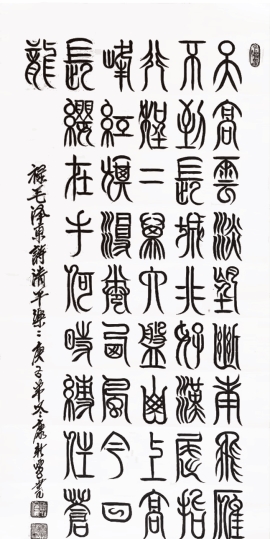 天高雲淡望斷南飛雁
不到長城非好漢屈指
行程二萬六盤山上高
峰紅旗漫卷西風今日
長纓在手何時縛住蒼
龍
錄毛澤東詩清平樂庚子年冬